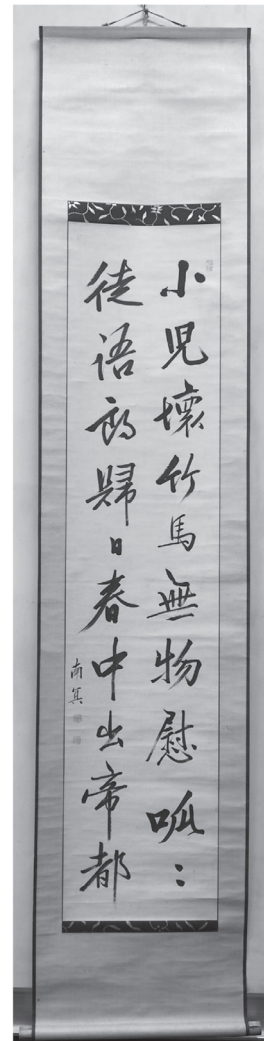 小児壊竹馬無物慰呱〻
徒語郎歸日春中出帝都
南冥